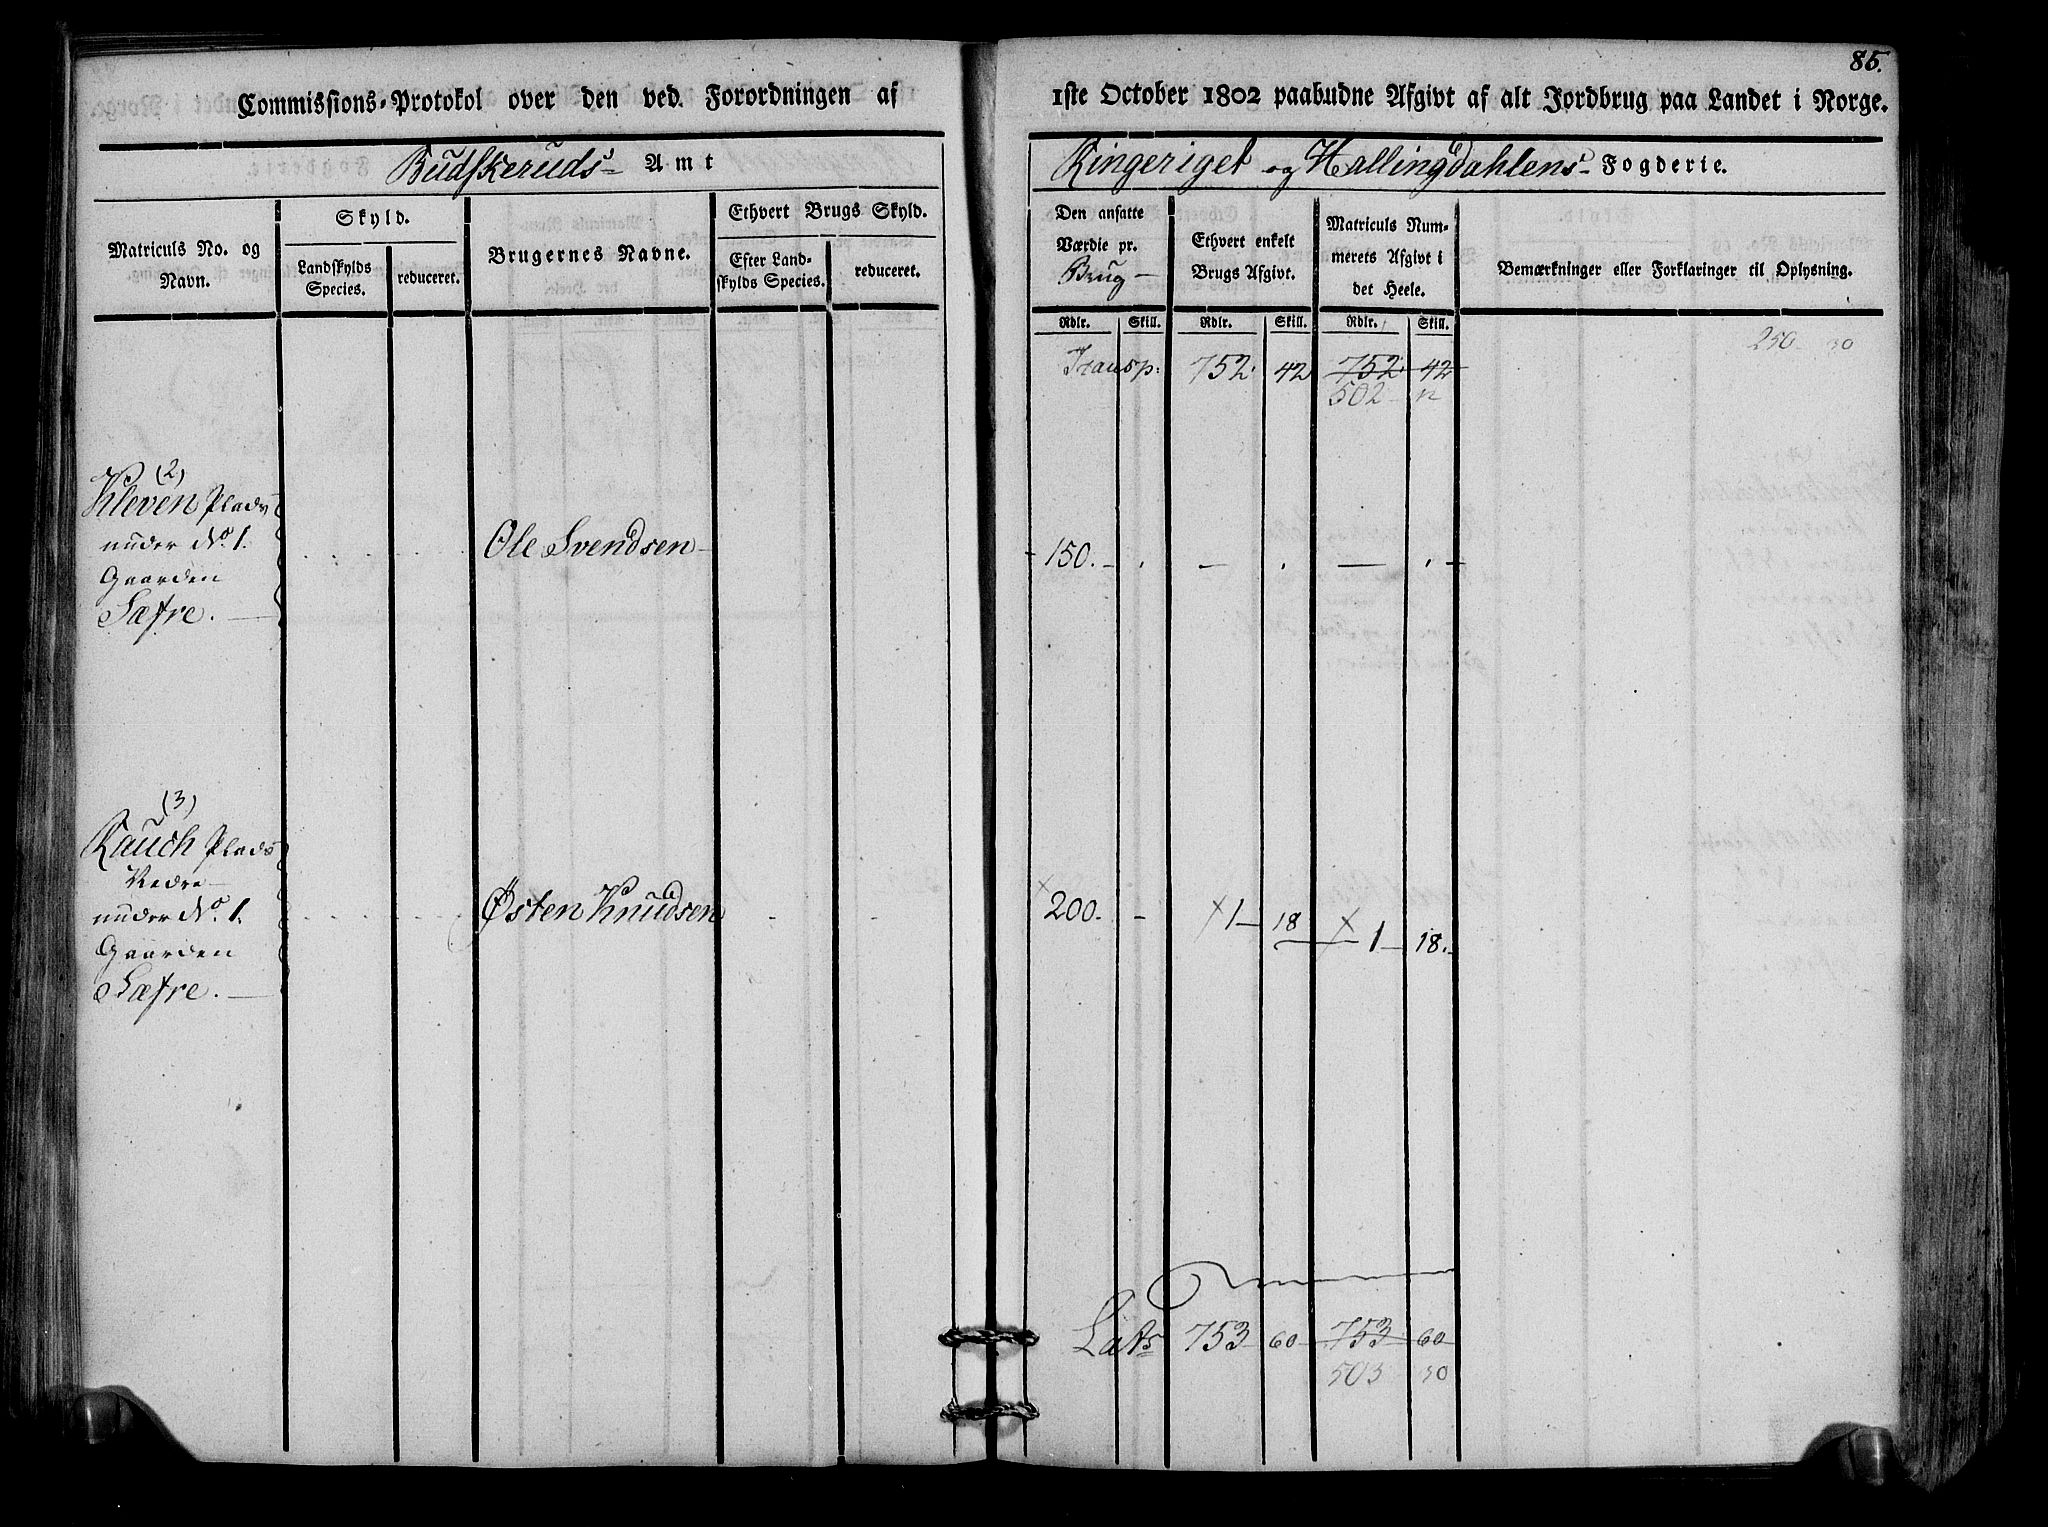 85.
Commissions-Protokol over den ved Forordningen af
1ste October 1802 paabudne Afgivt af alt Jordbrug paa Landet i Norge.
Budskeruds Amt
Ringeriget og Hallingdahlens Fogderie.
Matriculs No. og Navn.
Skyld.
Landskylds Species.
reduceret.
Brugernes Navne.
Ethvert Brugs Skyld.
Efter Landskylds Species.
reduceret.
Den ansatte Værdie pr. Brug
Ethvert enkelt Brugs Afgivt.
Matriculs Nummerets Afgivt i det Heele.
Bemærkninger eller Forklaringer til Oplysning.
Rdlr. Skill. Rdlr. Skill. Rdlr. Skill.
250 30
Transp: 752. 42 752. 42
502 12
(2)
Kleven Plads
under No. 1.
Gaarden
Sæfre.
Ole Svendsen
150. - . - . - .
(3)
Rauch Plads
Nedre
under No. 1.
Gaarden
Sæfre.
Østen Knudsen
200. - 1 18
1 18.
Lats 753 60 753 60
503 30